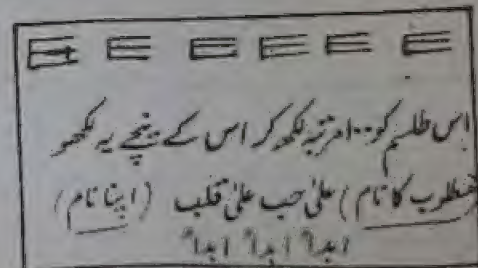 اس طلسم کو ۱۰۰ مرتبہ لکھ کر اس کے نیچے یہ لکھو
(مطلوب کا نام) علیٰ حب علیٰ قلب (اپنا نام)
ابداً ابداً ابداً